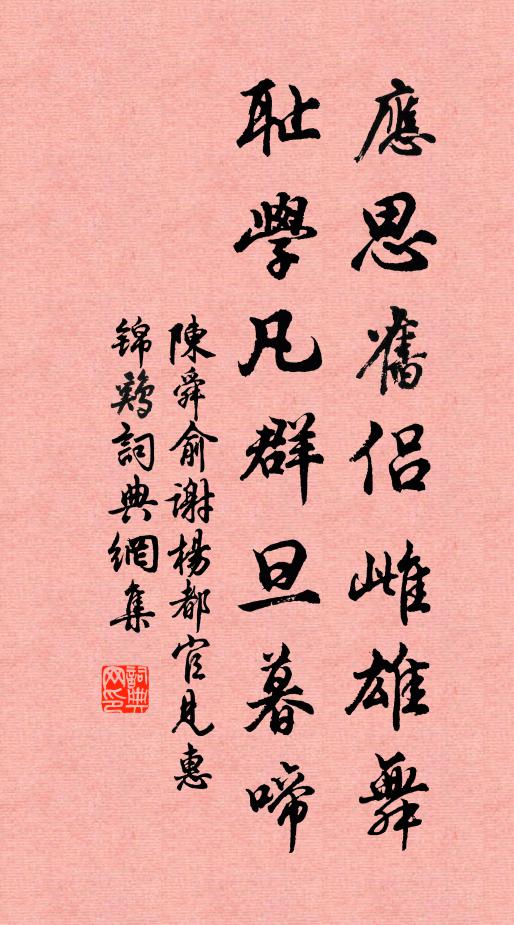 應思舊侶雌雄舞
耻學凡群旦暮啼
陳舜俞謝楊都官見惠
锦鷄詞典網集
詞典网印